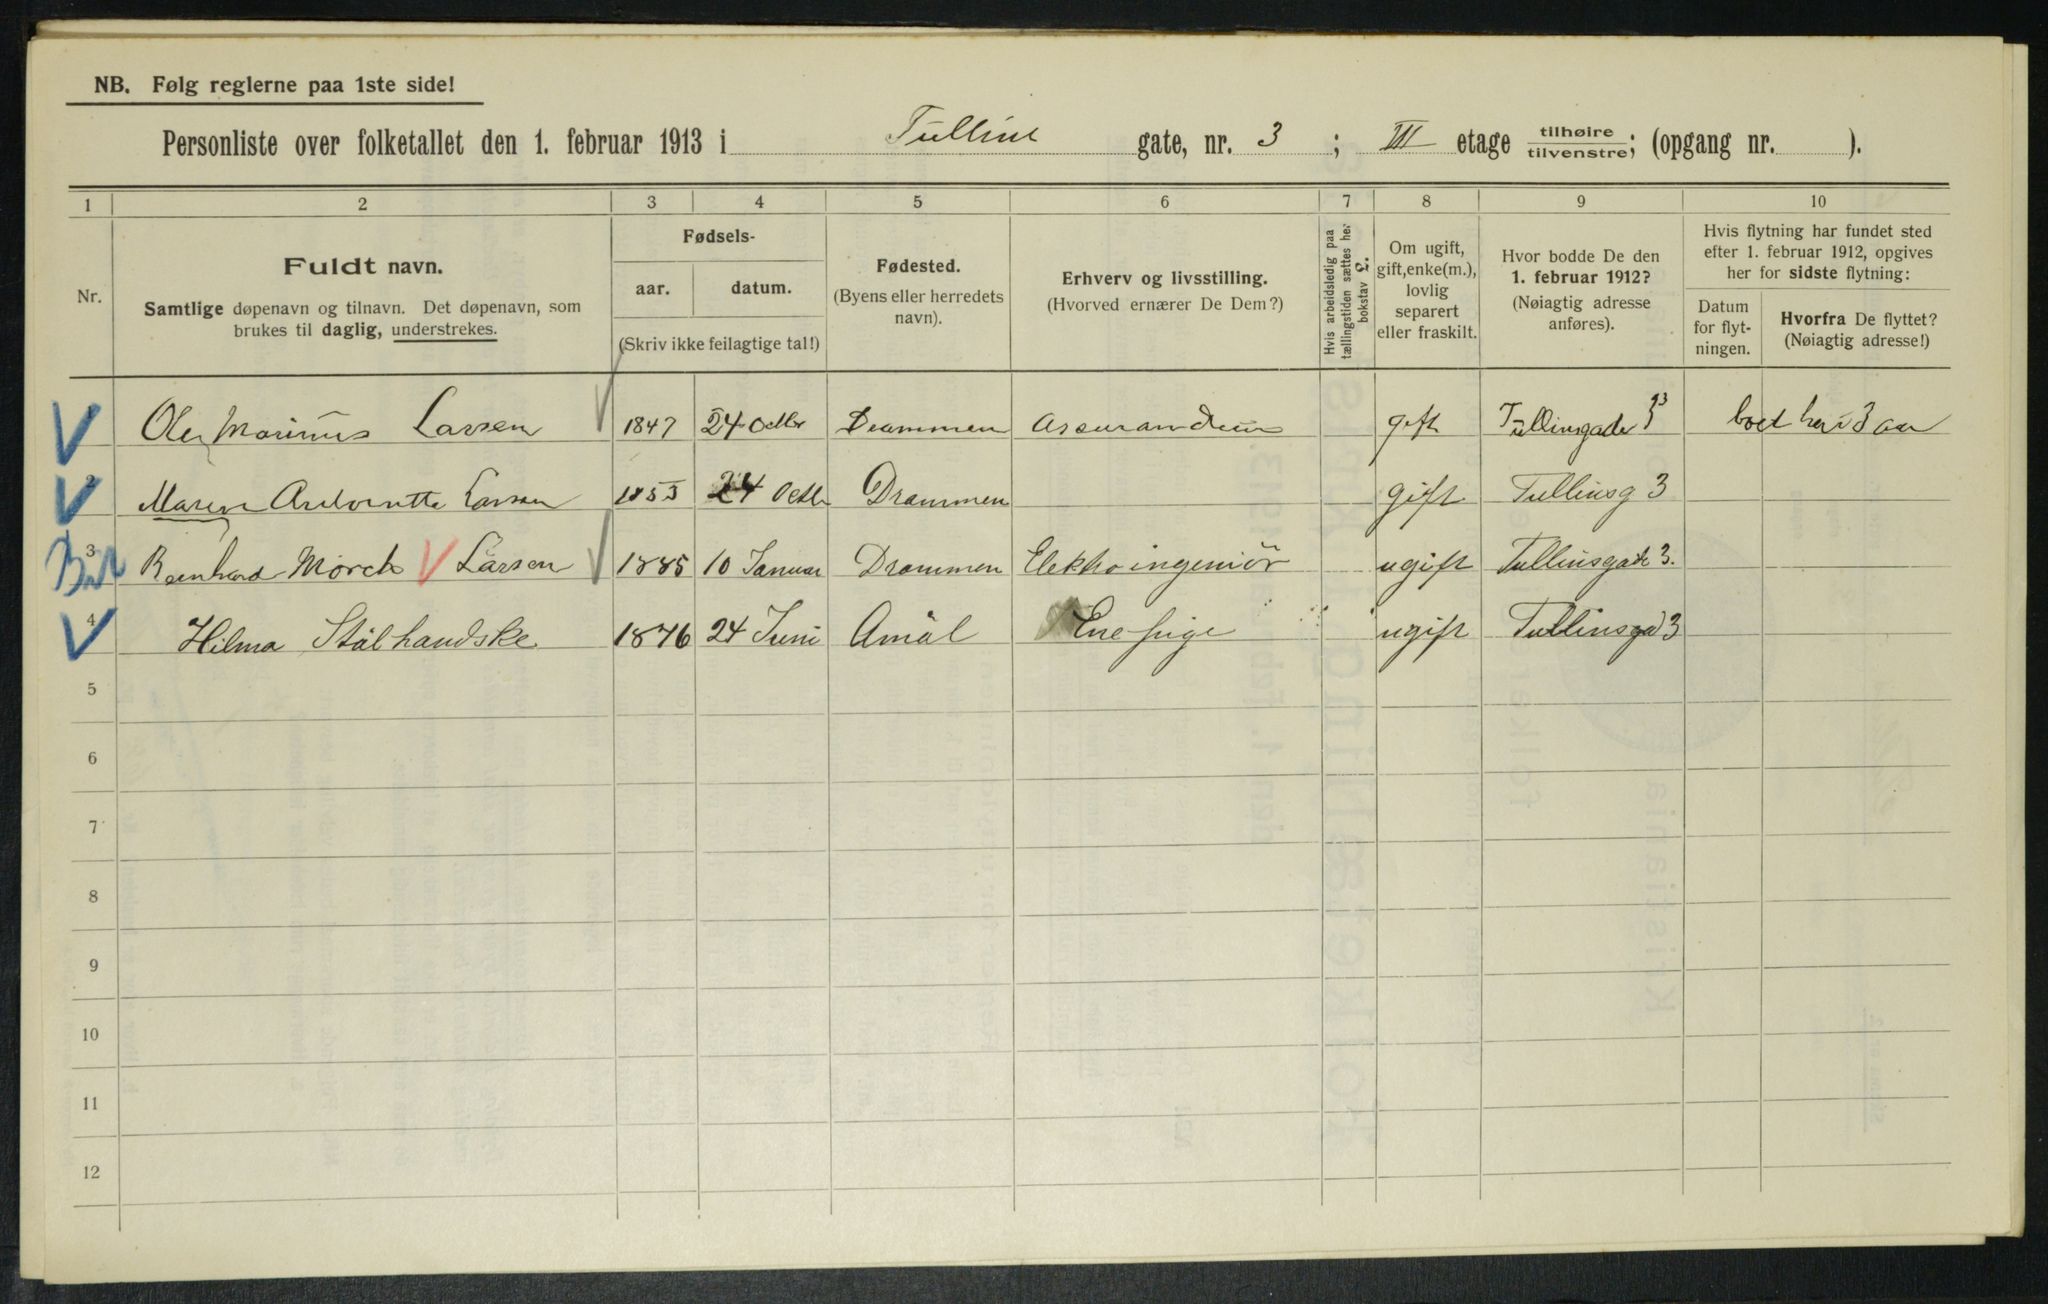 NB. Følg reglerne paa 1ste side!
Personliste over folketallet den 1. februar 1913 i Tullins gate, nr. 3 ; III etage tilhøire/tilvenstre; (opgang nr. ).
1 2 3 4 5 6 7 8 9 10
Nr.
Fuldt navn.
Samtlige døpenavn og tilnavn. Det døpenavn, som
brukes til daglig, understrekes.
Fødsels-
aar. datum.
(Skriv ikke feilagtige tal!)
Fødested.
(Byens eller herredets
navn).
Erhverv og livsstilling.
(Hvorved ernærer De Dem?)
Hvis arbeidsledig paa
tællingstiden sættes her
bokstav L.
Om ugift,
gift, enke(m.),
lovlig
separert
eller fraskilt.
Hvor bodde De den
1. februar 1912?
(Nøiagtig adresse
anføres).
Hvis flytning har fundet sted
efter 1. februar 1912, opgives
her for sidste flytning:
Datum
for flyt-
ningen.
Hvorfra De flyttet?
(Nøiagtig adresse!)
Ole Marinus Larsen 1847 24 Octbr Drammen gift Tullinsgade 3 boet her i 3 aar
2 Maren Larsen 1853 24 Octb Drammen gift Tullinsg 3
3 Bernhard Mörck Larsen 1885 10 Januar Drammen Elektroingeniör ugift Tullinsgade 3.
4 Hilma Stålhandske 1876 24 Juni Amål Enepige ugift Tullinsgd 3
5
6
7
8
9
10
11
12